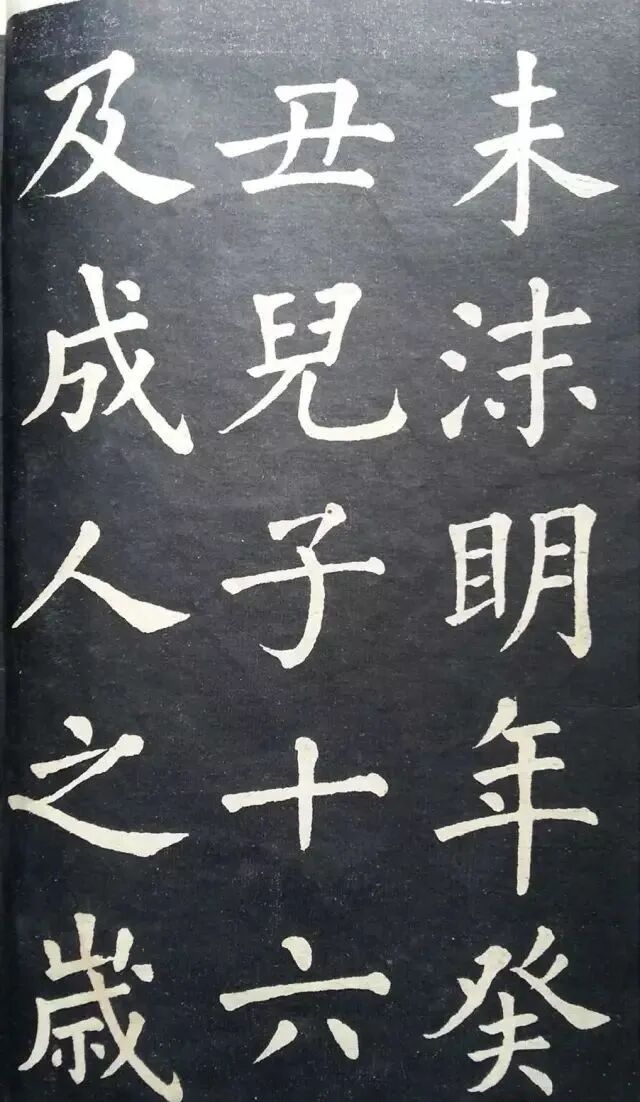 未沫眀年癸
丑兒子十六
及成人之歲